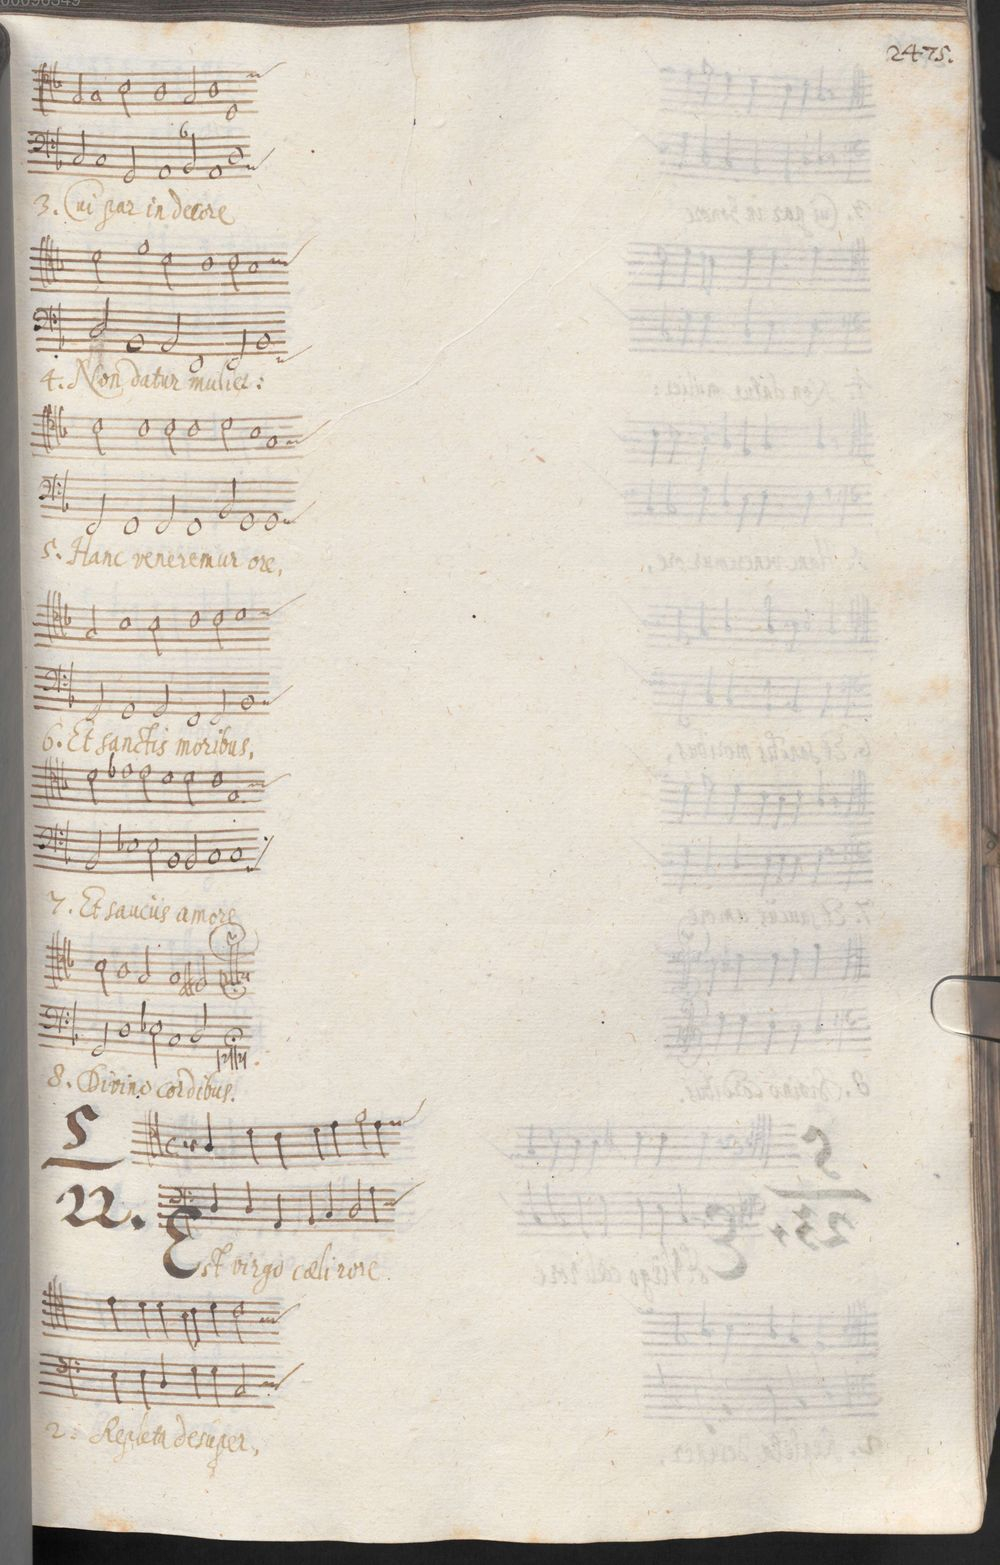 2475.
3. Cui par in decore
4. Non datur mulier:
5. Hanc veneremur ore,
6. Et sanctis moribus,
7. Et saucÿs amore
8. Divino cordibus.
5
22.
Est virgo cœli rore
2. Repleta desuper,